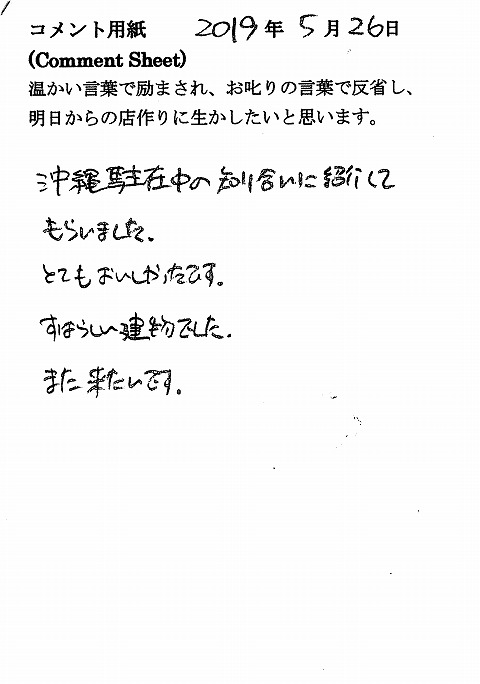 コメント用紙 2019年5月26日
(Comment Sheet)
温かい言葉で励まされ、お叱りの言葉で反省し、
明日からの店作りに生かしたいと思います。
沖縄駐在中の知り合いに紹介して
もらいました。
とてもおいしかったです。
すばらしい建物でした。
また来たいです。